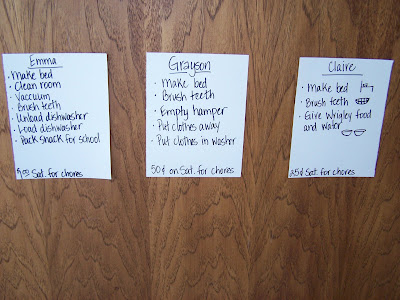 Emma
· Make bed
· Clean room
· Vaccuum
· Brush teeth
· Unload dishwasher
· Load dishwasher
· Pack snack for school
$1.00 Sat. for chores
Grayson
· Make bed
· Brush teeth
· Empty hamper
· Put clothes away
· Put clothes in washer
50¢ on Sat. for chores
Claire
· Make bed
· Brush teeth
· Give Wrigley food
and water
25¢ Sat. for chores